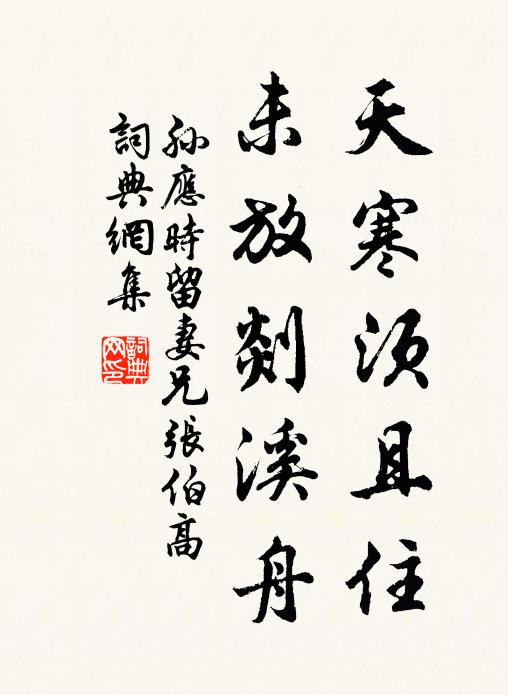 天寒须且住
未放剡溪舟
孙應時留妻兄張伯高
詞典網集
詞典网印